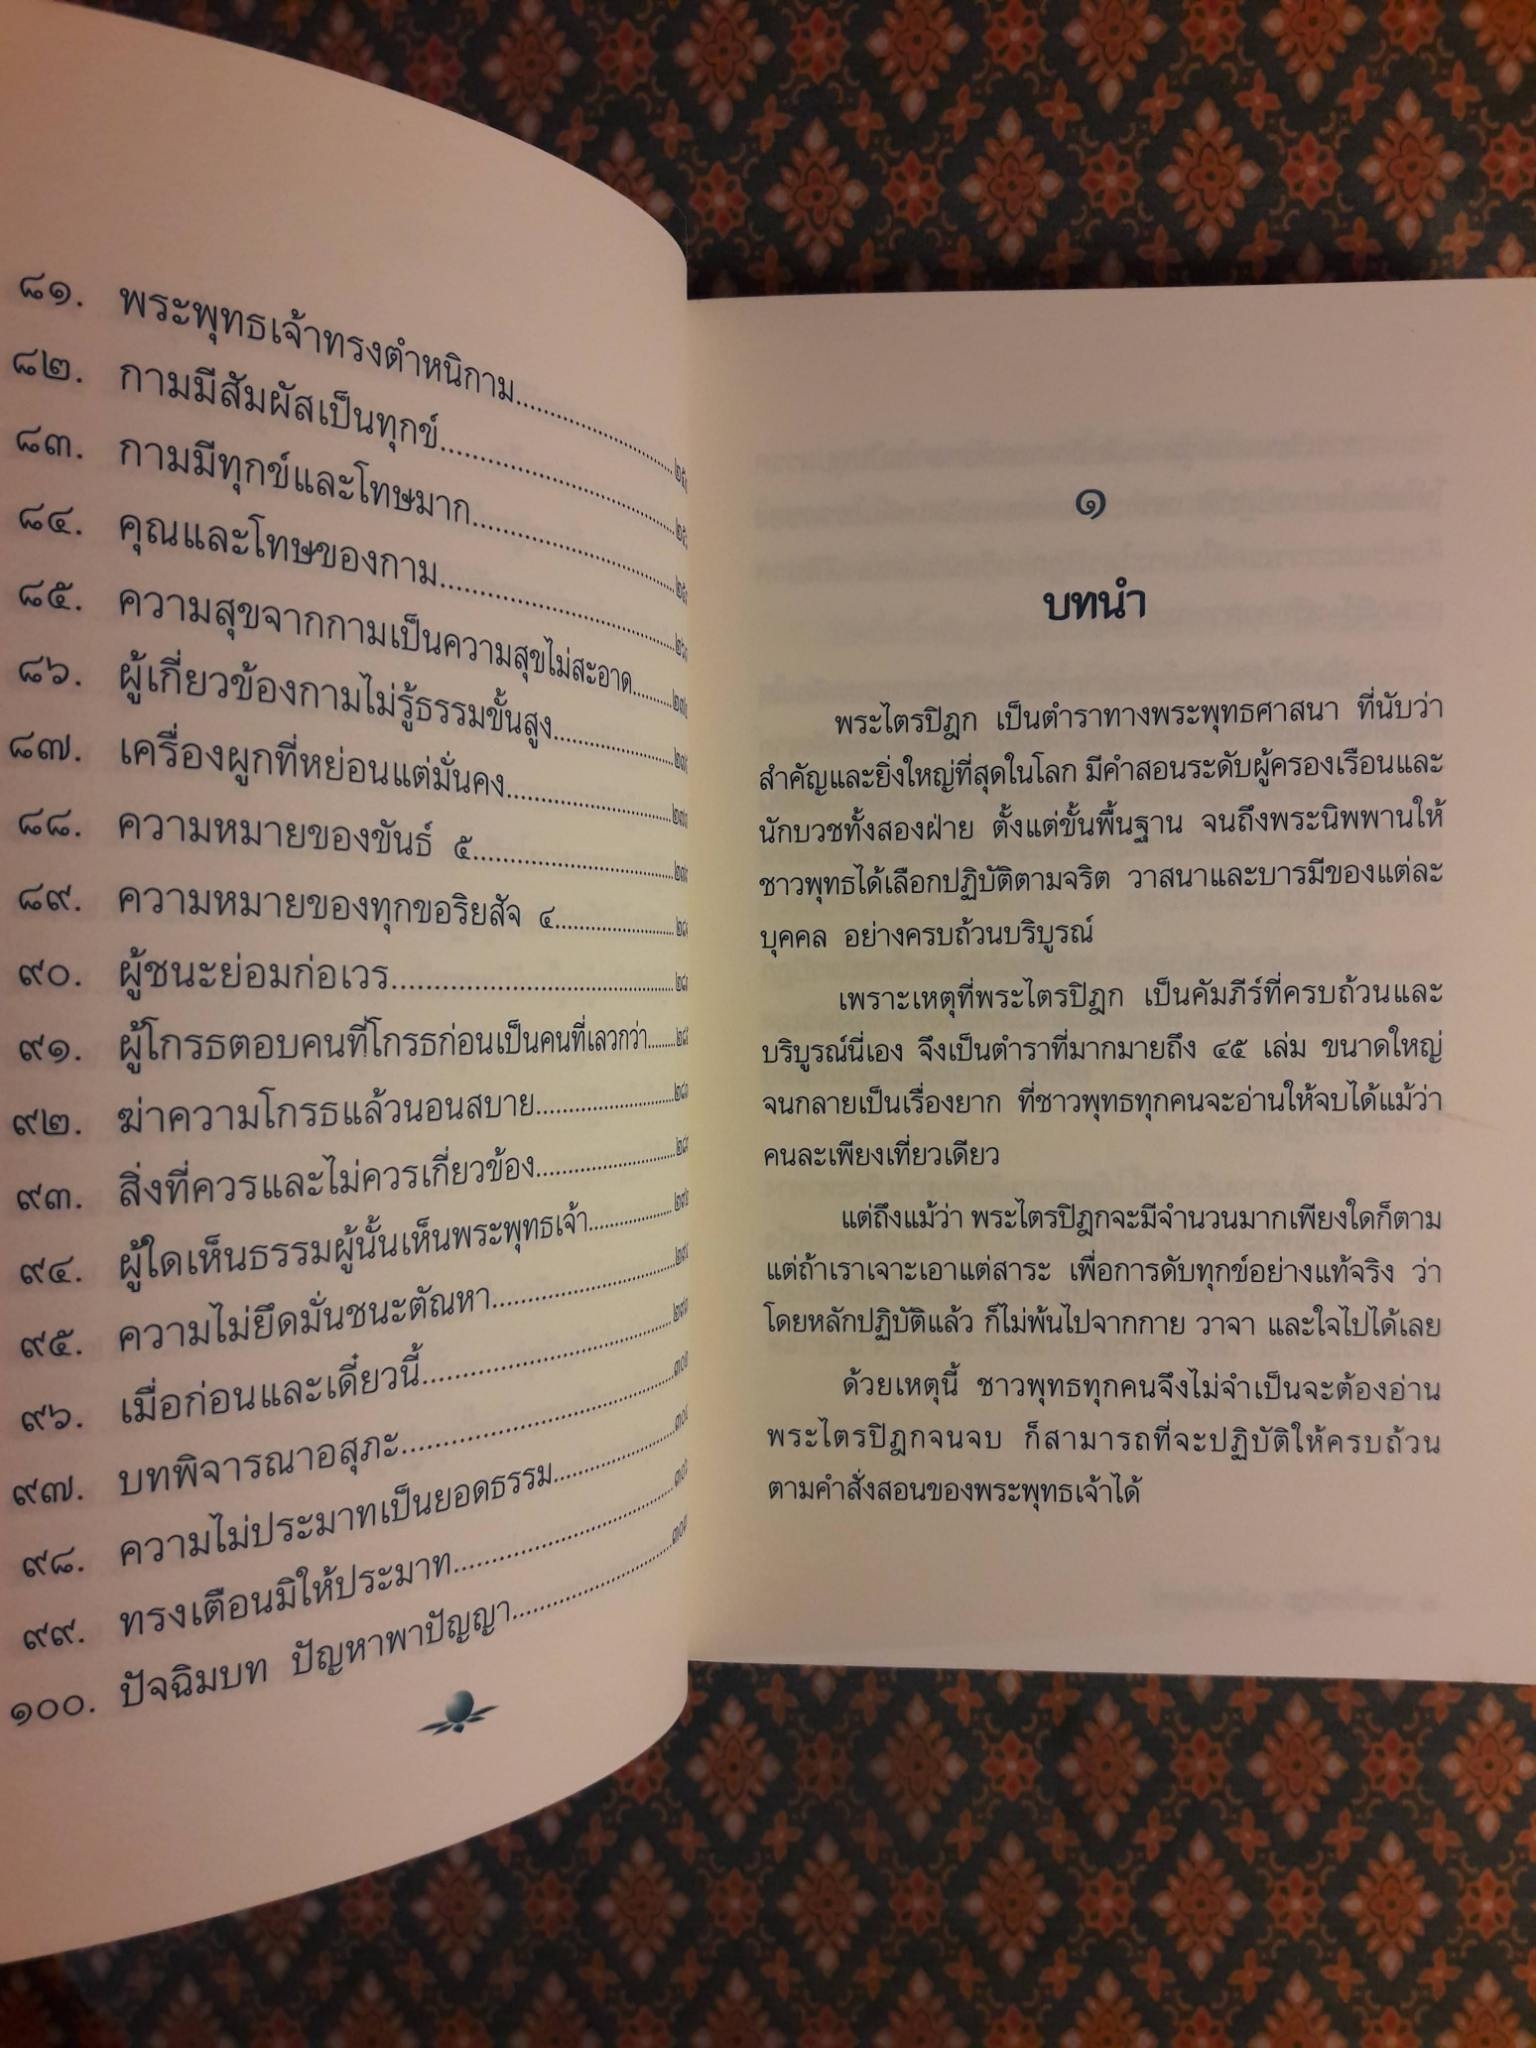 ๘๑. พระพุทธเจ้าทรงตำหนิกาม
๘๒. กามมีสัมผัสเป็นทุกข์
๘๓. กามมีทุกข์และโทษมาก
๘๔. คุณและโทษของกาม
๘๕. ความสุขจากกามเป็นความสุขไม่สะอาด
๘๖. ผู้เกี่ยวข้องกามไม่รู้ธรรมขั้นสูง
๘๗. เครื่องผูกที่หย่อนแต่มั่นคง
๘๘. ความหมายของขันธ์ ๕
๘๙. ความหมายของทุกขอริยสัจ ๔
๙๐. ผู้ชนะย่อมก่อเวร
๙๑. ผู้โกรธตอบคนที่โกรธก่อนเป็นคนที่เลวกว่า
๙๒. ฆ่าความโกรธแล้วนอนสบาย
๙๓. สิ่งที่ควรและไม่ควรเกี่ยวข้อง
๙๔. ผู้ใดเห็นธรรมผู้นั้นเห็นพระพุทธเจ้า
๙๕. ความไม่ยึดมั่นชนะตัณหา
๙๖. เมื่อก่อนและเดี๋ยวนี้
๙๗. บทพิจารณาอสุภะ
๙๘. ความไม่ประมาทเป็นยอดธรรม
๙๙. ทรงเตือนมิให้ประมาท
๑๐๐. ปัจฉิมบท ปัญหาพาปัญญา
๑
บทนำ
พระไตรปิฎก เป็นตำราทางพระพุทธศาสนา ที่นับว่า
สำคัญและยิ่งใหญ่ที่สุดในโลก มีคำสอนระดับผู้ครองเรือนและ
นักบวชทั้งสองฝ่าย ตั้งแต่ขั้นพื้นฐาน จนถึงพระนิพพานให้
ชาวพุทธได้เลือกปฏิบัติตามจริต วาสนาและบารมีของแต่ละ
บุคคล อย่างครบถ้วนบริบูรณ์
เพราะเหตุที่พระไตรปิฎก เป็นคัมภีร์ที่ครบถ้วนและ
บริบูรณ์นี่เอง จึงเป็นตำราที่มากมายถึง ๔๕ เล่ม ขนาดใหญ่
จนกลายเป็นเรื่องยาก ที่ชาวพุทธทุกคนจะอ่านให้จบได้แม้ว่า
คนละเพียงเที่ยวเดียว
แต่ถึงแม้ว่า พระไตรปิฎกจะมีจำนวนมากเพียงใดก็ตาม
แต่ถ้าเราเจาะเอาแต่สาระ เพื่อการดับทุกข์อย่างแท้จริง ว่า
โดยหลักปฏิบัติแล้ว ก็ไม่พ้นไปจากกาย วาจา และใจไปได้เลย
ด้วยเหตุนี้ ชาวพุทธทุกคนจึงไม่จำเป็นจะต้องอ่าน
พระไตรปิฎกจนจบ ก็สามารถที่จะปฏิบัติให้ครบถ้วน
ตามคำสั่งสอนของพระพุทธเจ้าได้